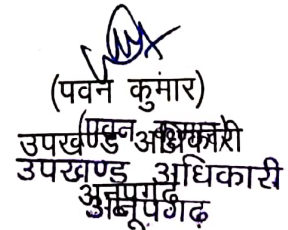 (पवन कुमार)
(पवन कुमार)
उपखण्ड अधिकारी
उपखण्ड अधिकारी
अनूपगढ़
अनूपगढ़